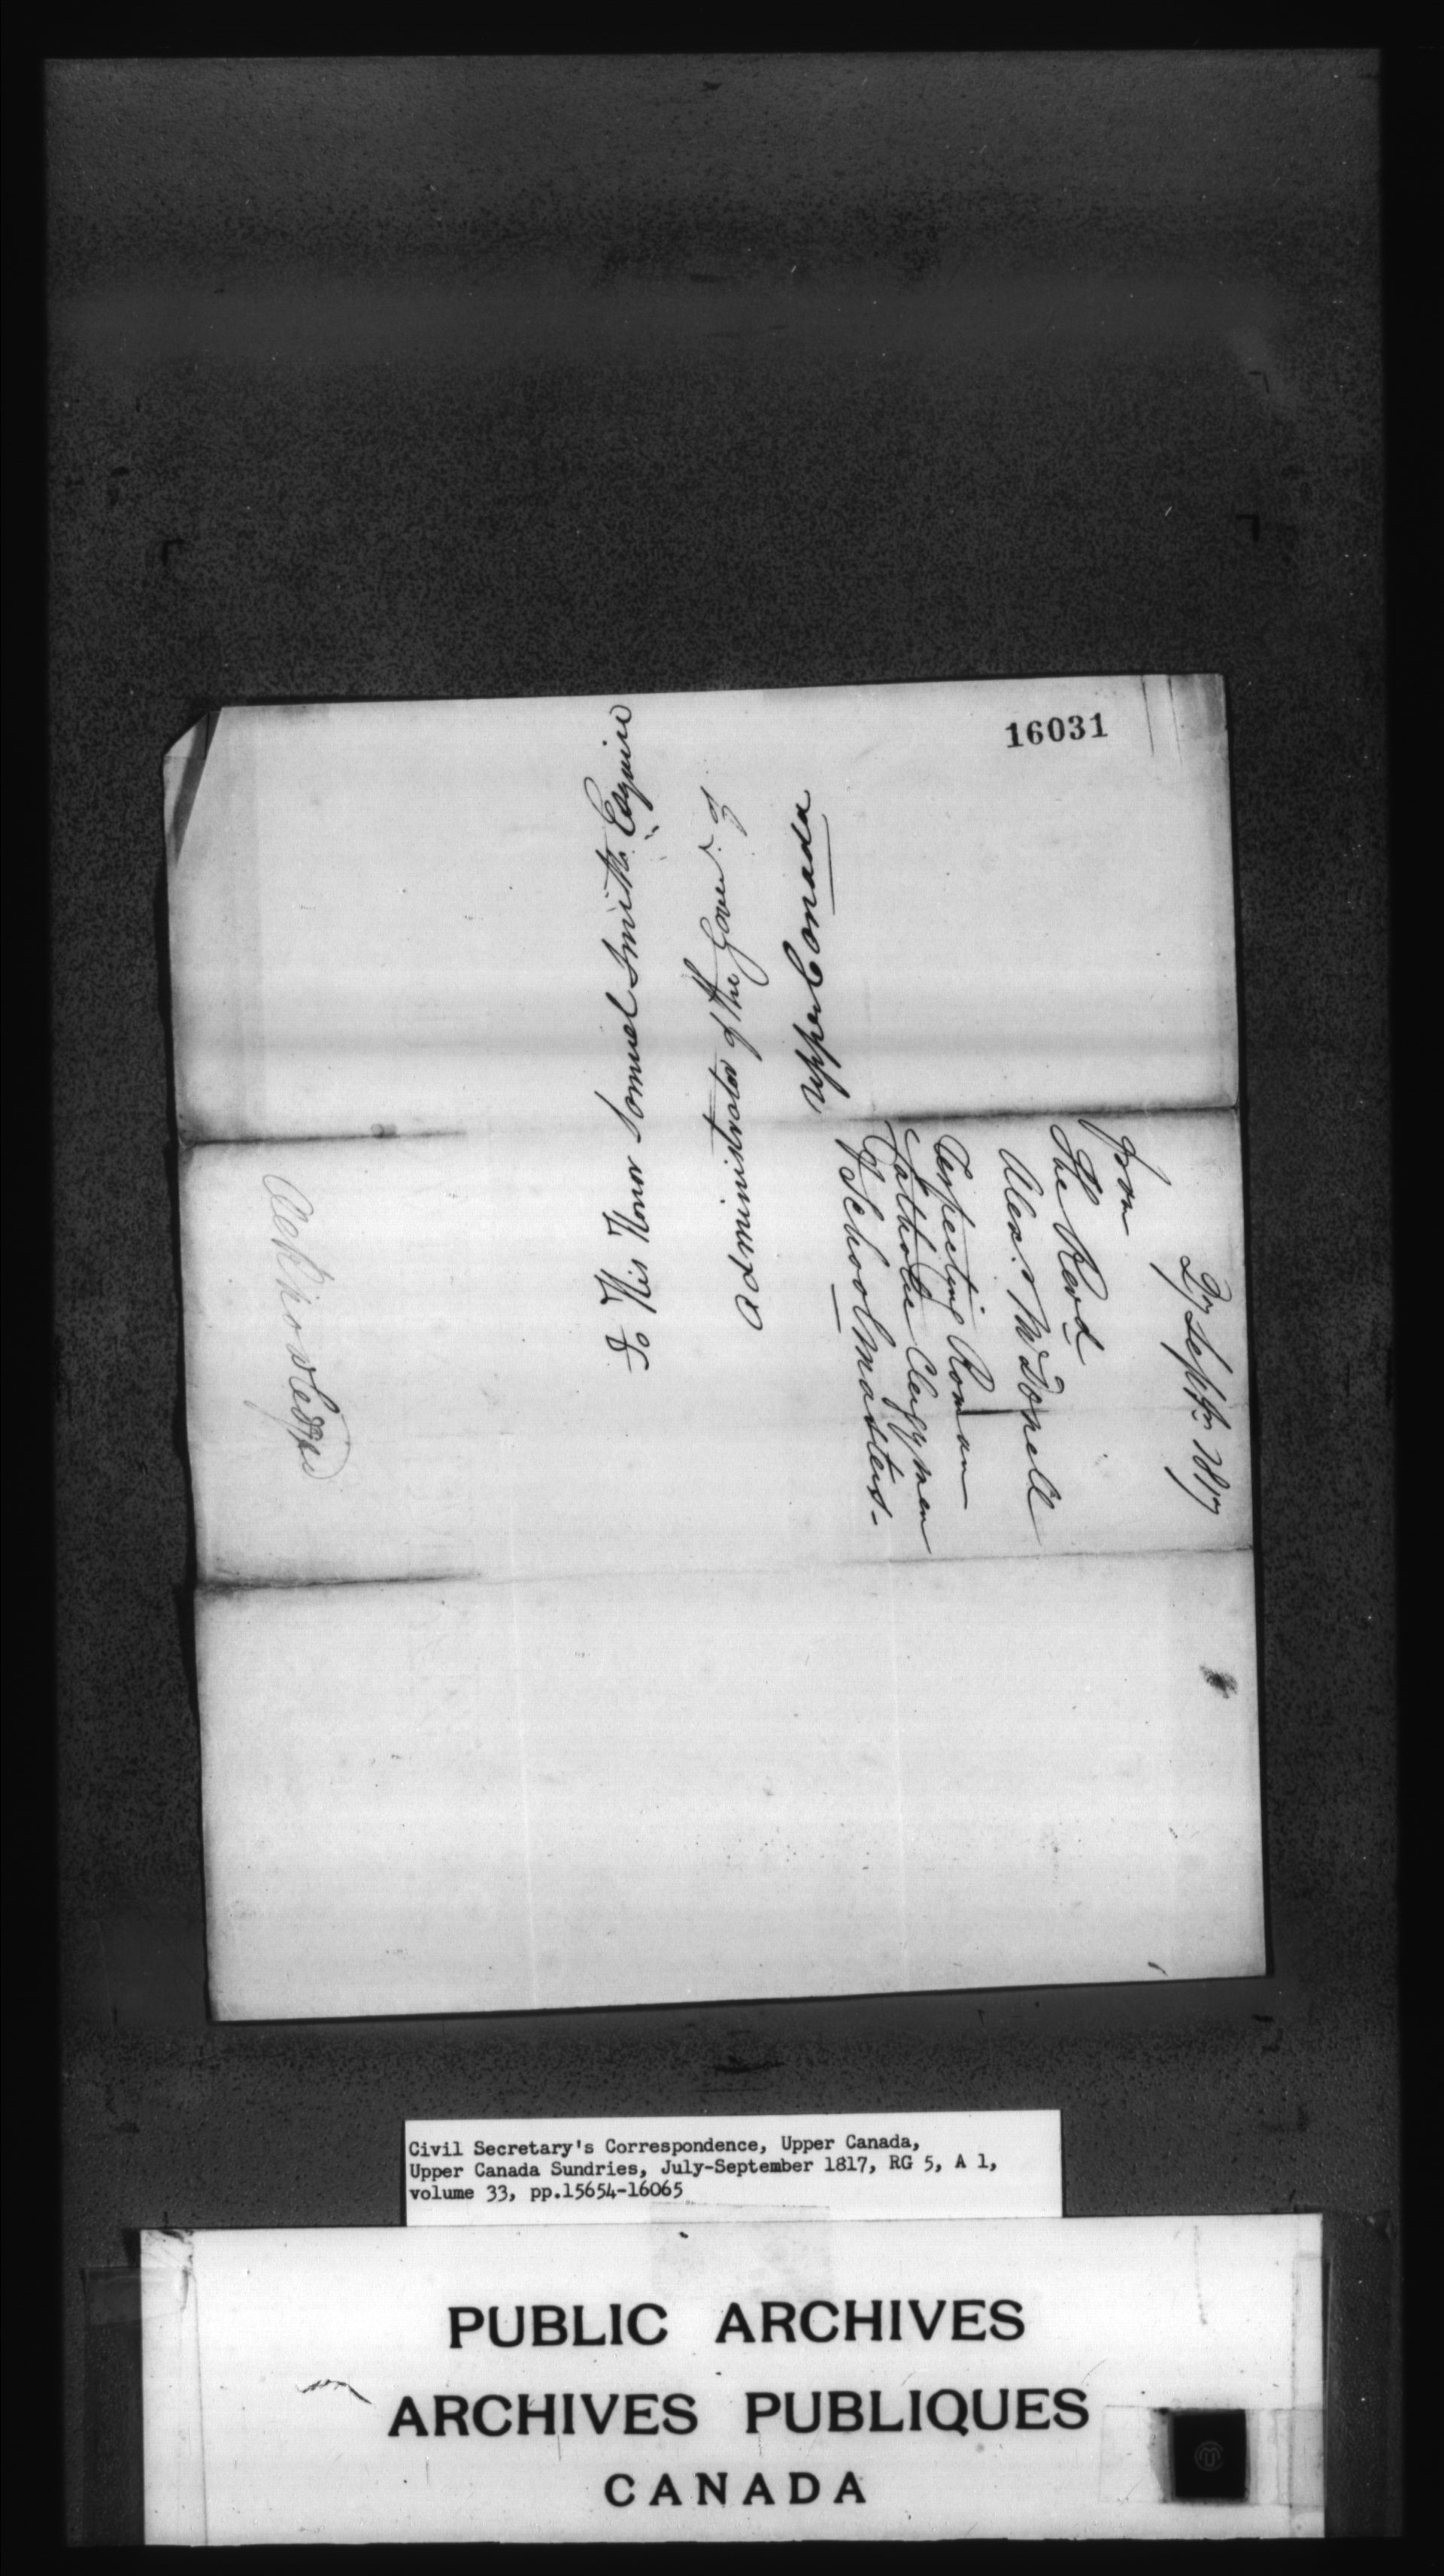 16031
To His Honor Samuel Smith Esquire
Administrator of the Govert. of
Upper Canada
27 Septr. 1817
From
The Revd
Alexr. McDonell
respecting Roman
Catholic Clergymen
& Schoolmasters.
Acknowledged
Civil Secretary's Correspondence, Upper Canada,
Upper Canada Sundries, July-September 1817, RG 5, A 1,
volume 33, pp.15654-16065
PUBLIC ARCHIVES
ARCHIVES PUBLIQUES
CANADA